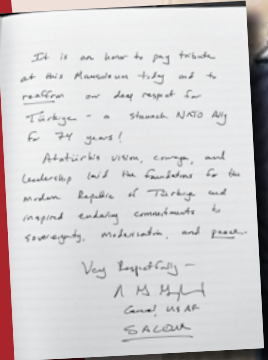 It is an honor to pay tribute
at this Mausoleum today and to
reaffirm our deep respect for
Türkiye - a staunch NATO Ally
for 74 years!
Atatürk's vision, courage, and
leadership laid the foundations for the
modern Republic of Türkiye and
inspired enduring commitments to
sovereignty, modernization, and peace.
Very Respectfully -
General, USAF
SACEUR